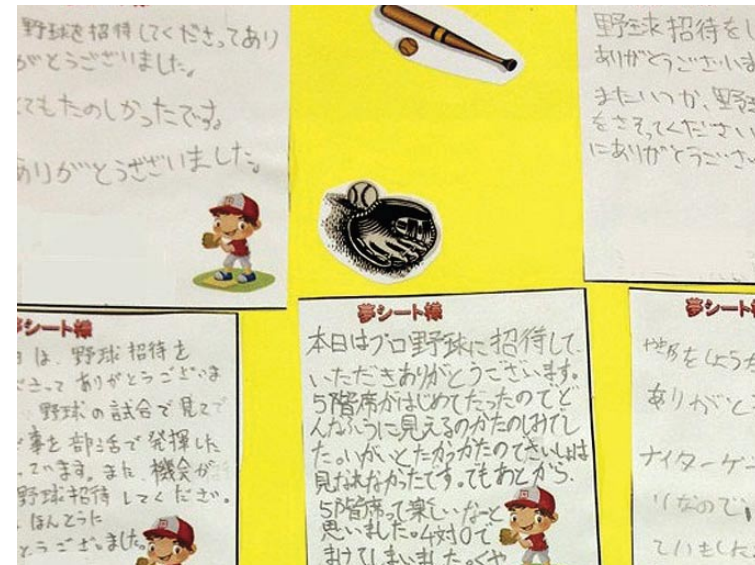 野球を招待してくださってあり
がとうございました。
てもたのしかったです。
ありがとうございました。
野球招待をし
ありがとうございま
またいつか、野
をさそってください
にありがとうござい
夢シート様
は、野球招待を
さって ありがとうございま
野球の試合で見て
事を部活で発揮した
っています。また、機会が
野球招待してください。
ほんとうに
とうございました。
夢シート様
本日はプロ野球に招待して、
いただきありがとうございます。
5階席がはじめてだったのでど
んなふうに見えるのかたのしみでし
た。いがいとたかかったのでさいしょは
見なれなかったです。でもあとから、
5階席って楽しいなーと
思いました。4対0で
まけてしまいました。くや
夢シート
ありがと
ナイターゲ
りなので
ていました